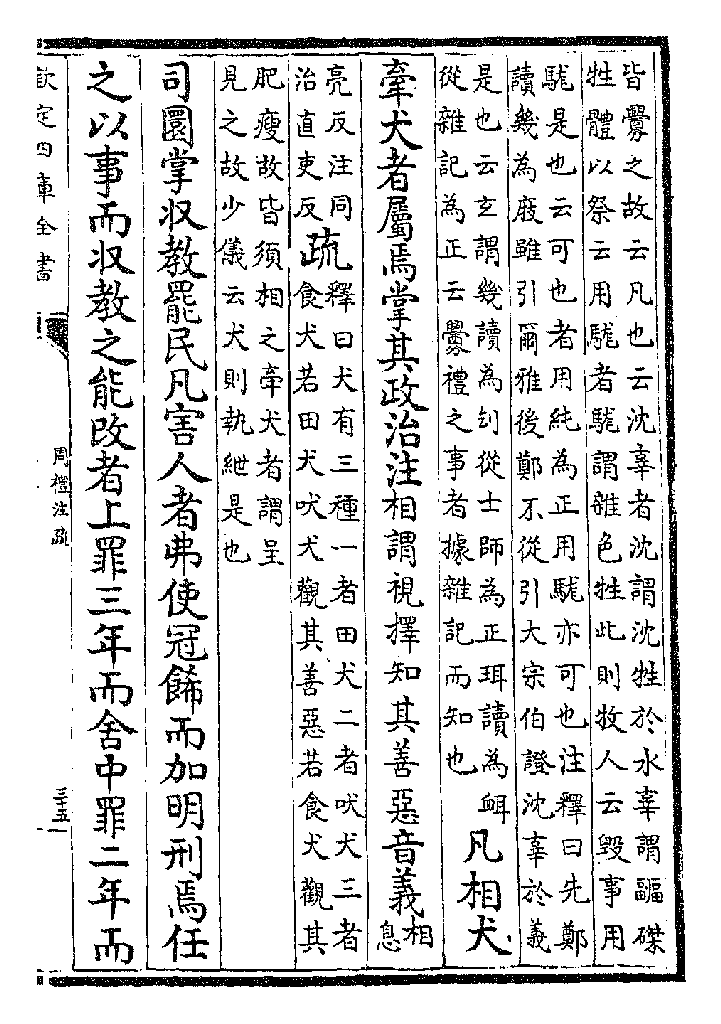 皆釁之故云凡也云沈辜者沈謂沈牲於水辜謂疈磔
牲體以祭云用駹者駹謂雜色牲此則牧人云毀事用
駹是也云可也者用純為正用駹亦可也注釋曰先鄭
讀幾為庪雖引爾雅後鄭不從引大宗伯證沈辜於義
是也云玄謂幾讀為刉從士師為正珥讀為衈
從雜記為正云釁禮之事者據雜記而知也
凡相犬
牽犬者屬焉掌其政治注相謂視擇知其善惡音義相息
亮反注同
治直吏反
疏
釋曰犬有三種一者田犬二者吠犬三者
食犬若田犬吠犬觀其善惡若食犬觀其
肥瘦故皆須相之牽犬者謂呈
見之故少儀云犬則執紲是也
司圜掌収教罷民凡害人者弗使冠飾而加明刑焉任
之以事而収教之能改者上罪三年而舍中罪二年而
欽定四庫全書
周禮注疏
三十五